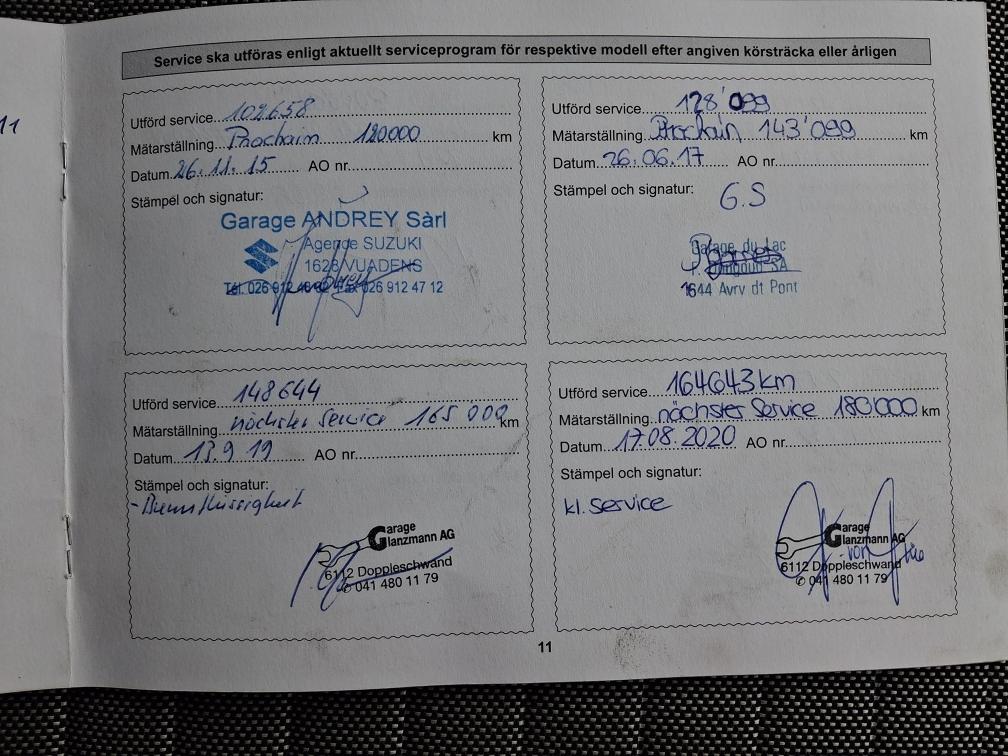 11
Service ska utföras enligt aktuellt serviceprogram för respektive modell efter angiven körsträcka eller årligen
Utförd service 102658
Mätarställning Prochain 120000 km
Datum 26.11.15 AO nr.
Stämpel och signatur:
Garage ANDREY Sàrl
Agence SUZUKI
1628 VUADENS
Tél. 026 912 Fax 026 912 47 12
Utförd service 128'099
Mätarställning Prochain 143'099 km
Datum 26.06.17 AO nr.
Stämpel och signatur:
G.S
Garage du Lac
SA
1644 Avry dt Pont
Utförd service 148644
Mätarställning nächster Service 165 000 km
Datum 13.9 19 AO nr.
Stämpel och signatur:
- Bremsflüssigkeit
Garage
Glanzmann AG
6112 Doppleschwand
✆ 041 480 11 79
Utförd service 164643 km
Mätarställning nächster Service 180000 km
Datum 17.08.2020 AO nr.
Stämpel och signatur:
kl. Service
Garage
Glanzmann AG
6112 Doppleschwand
✆ 041 480 11 79
11